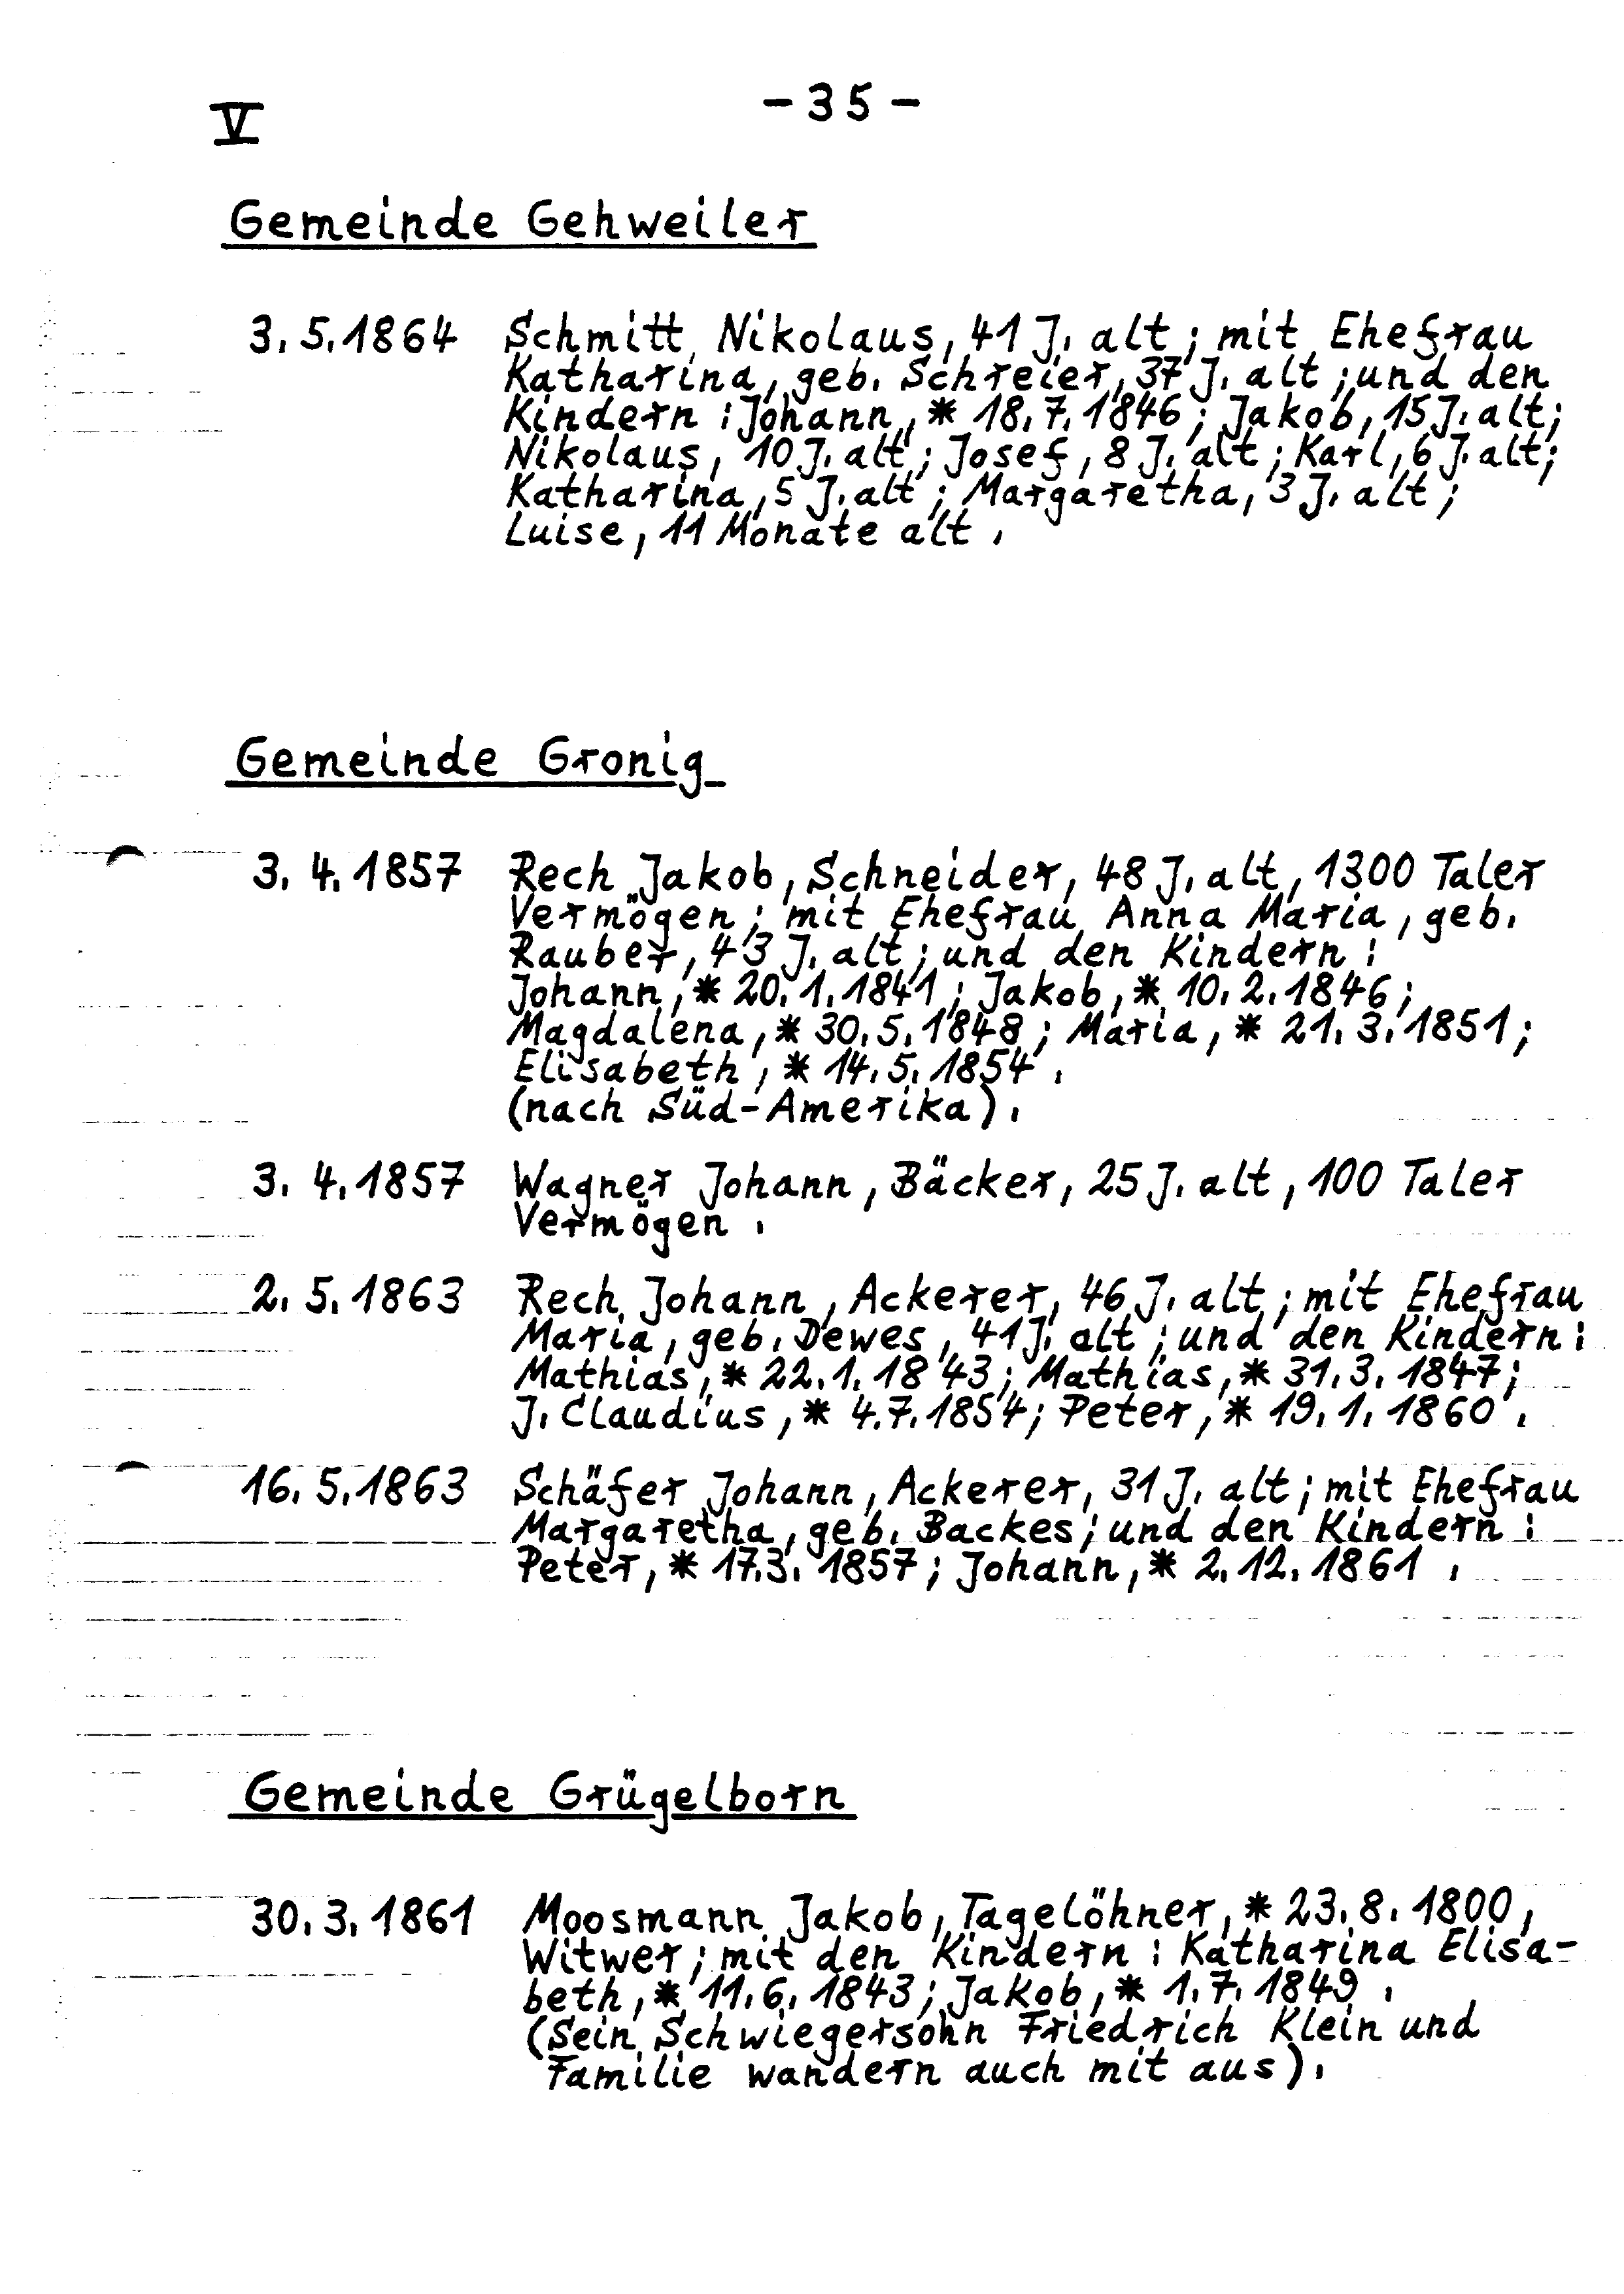 - 35 -
V
Gemeinde Gehweiler
3. 5. 1864 Schmitt Nikolaus, 41 J. alt; mit Ehefrau
Katharina, geb. Schreier, 37 J. alt; und den
Kindern: Johann, * 18. 7. 1846; Jakob, 15 J. alt;
Nikolaus, 10 J. alt; Josef, 8 J. alt; Karl, 6 J. alt;
Katharina, 5 J. alt; Margaretha, 3 J. alt;
Luise, 11 Monate alt.
Gemeinde Gronig
3. 4. 1857 Rech Jakob, Schneider, 48 J. alt, 1300 Taler
Vermögen; mit Ehefrau Anna Maria, geb.
Rauber, 43 J. alt; und den Kindern:
Johann, * 20. 1. 1841; Jakob, * 10. 2. 1846;
Magdalena, * 30. 5. 1848; Maria, * 21. 3. 1851;
Elisabeth, * 14. 5. 1854.
(nach Süd-Amerika).
3. 4. 1857 Wagner Johann, Bäcker, 25 J. alt, 100 Taler
Vermögen.
2. 5. 1863 Rech Johann, Ackerer, 46 J. alt; mit Ehefrau
Maria, geb. Dewes, 41 J. alt; und den Kindern:
Mathias, * 22. 1. 1843; Mathias, * 31. 3. 1847;
J. Claudius, * 4. 7. 1854; Peter, * 19. 1. 1860.
16. 5. 1863 Schäfer Johann, Ackerer, 31 J. alt; mit Ehefrau
Margaretha, geb. Backes; und den Kindern:
Peter, * 17. 3. 1857; Johann, * 2. 12. 1861.
Gemeinde Grügelborn
30. 3. 1861 Moosmann Jakob, Tagelöhner, * 23. 8. 1800,
Witwer; mit den Kindern: Katharina Elisa-
beth, * 11. 6. 1843; Jakob, * 1. 7. 1849.
(Sein Schwiegersohn Friedrich Klein und
Familie wandern auch mit aus).